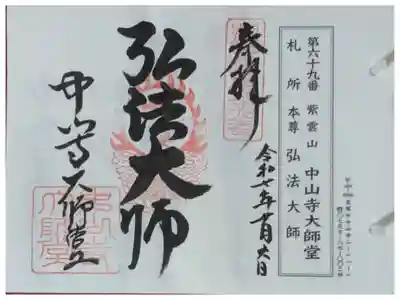 第六十九番 紫雲山 中山寺大師堂
札所本尊 弘法大師
奉拝
令和七年
弘法大師
中山寺大師堂